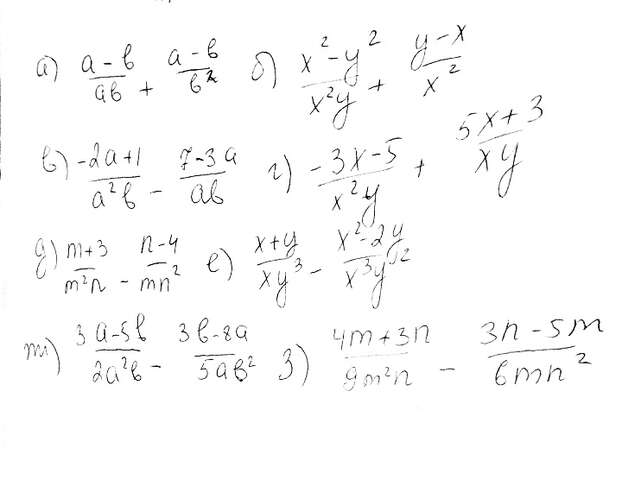 а) (a-b)/(ab) + (a-b)/(b²) б) (x²-y²)/(x²y) + (y-x)/(x²)
в) (-2a+1)/(a²b) - (7-3a)/(ab) г) (-3x-5)/(x²y) + (5x+3)/(xy)
д) (m+3)/(m²n) - (n-4)/(mn²) е) (x+y)/(xy³) - (x²-2y)/(x³y²)
ж) (3a-5b)/(2a²b) - (3b-8a)/(5ab²) з) (4m+3n)/(9m²n) - (3n-5m)/(6mn²)